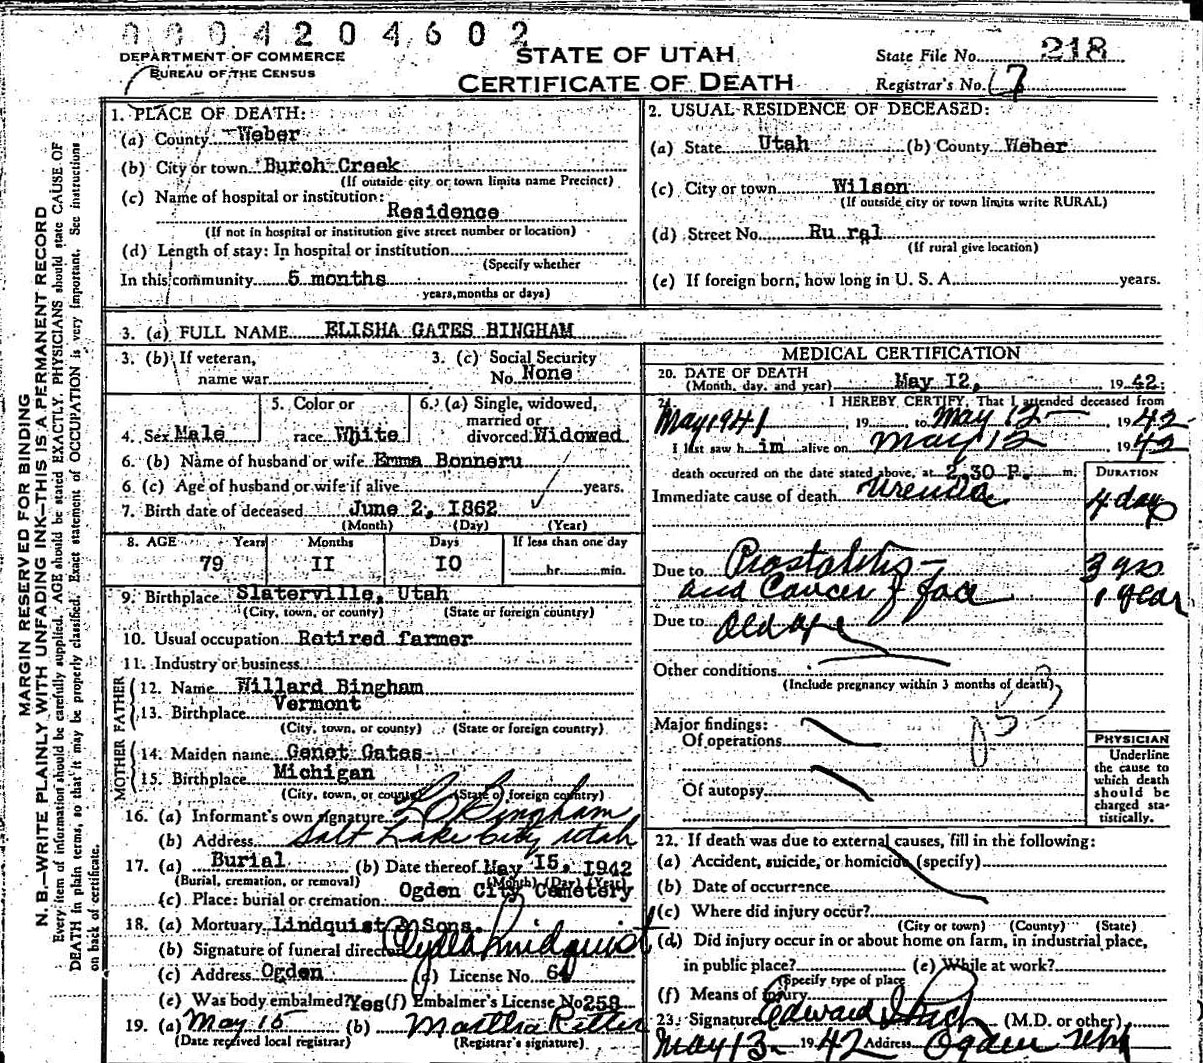 0004204602
DEPARTMENT OF COMMERCE
BUREAU OF THE CENSUS
STATE OF UTAH
CERTIFICATE OF DEATH
State File No. 218
Registrar's No. 17
MARGIN RESERVED FOR BINDING
N. B.—WRITE PLAINLY WITH UNFADING INK—THIS IS A PERMANENT RECORD
Every item of information should be carefully supplied. AGE should be stated EXACTLY. PHYSICIANS should state CAUSE OF
DEATH in plain terms, so that it may be properly classified. Exact statement of OCCUPATION is very important. See instructions
on back of certificate.
1. PLACE OF DEATH:
(a) County Weber
(b) City or town Burch Creek
(If outside city or town limits name Precinct)
(c) Name of hospital or institution:
Residence
(If not in hospital or institution give street number or location)
(d) Length of stay: In hospital or institution
(Specify whether
In this community 5 months
years, months or days)
2. USUAL RESIDENCE OF DECEASED:
(a) State Utah (b) County Weber
(c) City or town Wilson
(If outside city or town limits write RURAL)
(d) Street No. Ru ral
(If rural give location)
(e) If foreign born, how long in U. S. A. years.
3. (a) FULL NAME ELISHA GATES BINGHAM
3. (b) If veteran,
name war
3. (c) Social Security
No. None
4. Sex Male
5. Color or
race White
6. (a) Single, widowed,
married or
divorced Widowed
6. (b) Name of husband or wife Emma Bonneru
6 (c) Age of husband or wife if alive years.
7. Birth date of deceased June 2, 1862
(Month) (Day) (Year)
8. AGE Years Months Days If less than one day
79 II IO hr. min.
9. Birthplace Slaterville, Utah
(City, town, or county) (State or foreign country)
10. Usual occupation Retired farmer
11. Industry or business
FATHER
12. Name Willard Bingham
13. Birthplace Vermont
(City, town, or county) (State or foreign country)
MOTHER
14. Maiden name Genet Gates
15. Birthplace Michigan
(City, town, or county) (State or foreign country)
16. (a) Informant's own signature Bingham
(b) Address Salt Lake City Utah
17. (a) Burial (b) Date thereof May I5, I942
(Burial, cremation, or removal) (Month) (Day) (Year)
(c) Place: burial or cremation Ogden City Cemetery
18. (a) Mortuary Lindquist & Sons.
(b) Signature of funeral director Clyde Lindquist
(c) Address Ogden (d) License No. 64
(e) Was body embalmed? Yes (f) Embalmer's License No 258
19. (a) May 15 (b) Martha Ritter
(Date received local registrar) (Registrar's signature)
MEDICAL CERTIFICATION
20. DATE OF DEATH
(Month, day, and year) May I2, 1942.
21. I HEREBY CERTIFY, That I attended deceased from
May 1941, 19 to May 12 1942
I last saw h im alive on May 12 1942
death occurred on the date stated above, at 2.30 P. m.
DURATION
Immediate cause of death Uremia 4 days
Due to Prostatitis 3 yrs
and Cancer of face 1 year
Due to Old age
Other conditions
(Include pregnancy within 3 months of death)
Major findings:
Of operations
Of autopsy
PHYSICIAN
Underline
the cause to
which death
should be
charged sta-
tistically.
22. If death was due to external causes, fill in the following:
(a) Accident, suicide, or homicide (specify)
(b) Date of occurrence
(c) Where did injury occur?
(City or town) (County) (State)
(d) Did injury occur in or about home on farm, in industrial place,
in public place? (e) While at work?
(Specify type of place
(f) Means of injury
23. Signature Edward I Rich (M.D. or other)
May 13 1942 Address Ogden Utah